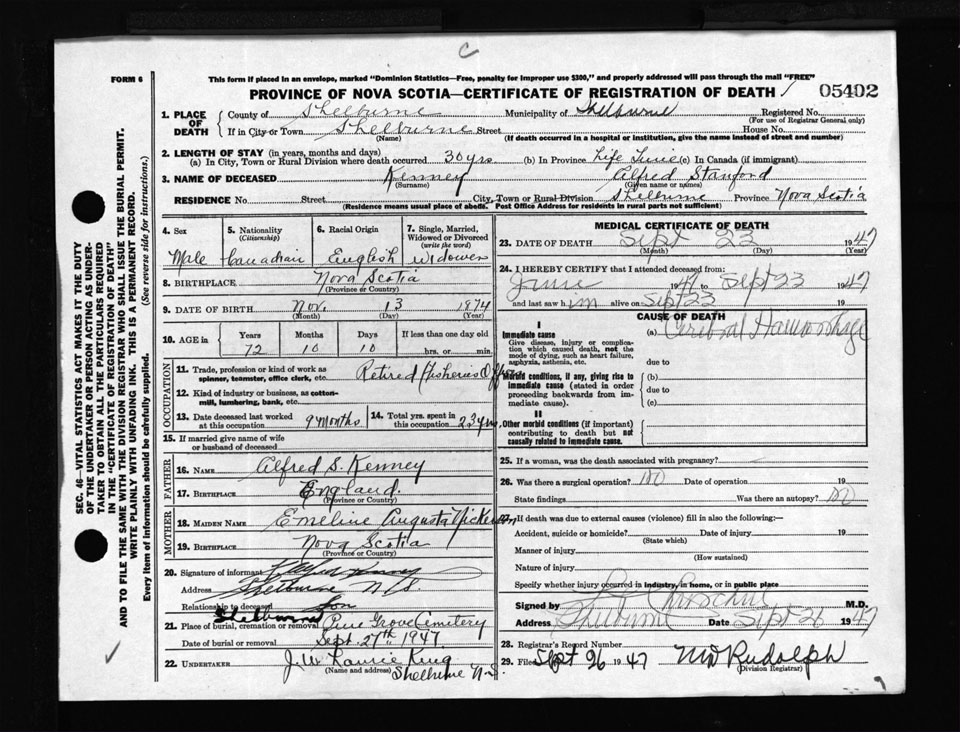 C
FORM 6
This form if placed in an envelope, marked "Dominion Statistics—Free, penalty for improper use $300," and properly addressed will pass through the mail "FREE"
PROVINCE OF NOVA SCOTIA—CERTIFICATE OF REGISTRATION OF DEATH 05402
1. PLACE OF DEATH
County of Shelburne Municipality of Shelburne Registered No.
(For use of Registrar General only)
If in City or Town Shelburne Street House No.
(Name) (If death occurred in a hospital or institution, give the name instead of street and number)
2. LENGTH OF STAY (in years, months and days)
(a) In City, Town or Rural Division where death occurred 30 yrs (b) In Province Life Time (c) In Canada (if immigrant)
3. NAME OF DECEASED Kenney Alfred Stanford
(Surname) (Given name or names)
RESIDENCE No. Street City, Town or Rural Division Shelburne Province Nova Scotia
(Residence means usual place of abode. Post Office Address for residents in rural parts not sufficient)
4. Sex 5. Nationality (Citizenship) 6. Racial Origin 7. Single, Married, Widowed or Divorced (write the word)
Male Canadian English Widower
8. BIRTHPLACE Nova Scotia
(Province or Country)
9. DATE OF BIRTH Nov. 13 1874
(Month) (Day) (Year)
10. AGE in Years Months Days If less than one day old
72 10 10 hrs. or min.
OCCUPATION
11. Trade, profession or kind of work as spinner, teamster, office clerk, etc. Retired Fisheries Officer
12. Kind of industry or business, as cotton-mill, lumbering, bank, etc.
13. Date deceased last worked at this occupation 9 months 14. Total yrs. spent in this occupation 23 yrs
15. If married give name of wife or husband of deceased
FATHER
16. NAME Alfred S. Kenney
17. BIRTHPLACE England.
(Province or Country)
MOTHER
18. MAIDEN NAME Emeline Augusta Nickerson
19. BIRTHPLACE Nova Scotia
(Province or Country)
20. Signature of informant Kenney
Address Shelburne N.S.
Relationship to deceased Son
21. Place of burial, cremation or removal Shelburne Pine Grove Cemetery
Date of burial or removal Sept. 27th 1947
22. UNDERTAKER J. W. Laurie King
(Name and address) Shelburne N.S.
MEDICAL CERTIFICATE OF DEATH
23. DATE OF DEATH Sept 23 1947
(Month) (Day) (Year)
24. I HEREBY CERTIFY that I attended deceased from:
June 1947 to Sept 23 1947
and last saw him alive on Sept 23 19
CAUSE OF DEATH
I
Immediate cause
Give disease, injury or complication which caused death, not the mode of dying, such as heart failure, asphyxia, asthenia, etc.
(a) Cerebral Haemorrhage
due to
Morbid conditions, if any, giving rise to immediate cause (stated in order proceeding backwards from immediate cause).
(b)
due to
(c)
II
Other morbid conditions (if important) contributing to death but not causally related to immediate cause.
25. If a woman, was the death associated with pregnancy?
26. Was there a surgical operation? No Date of operation 19
State findings Was there an autopsy? No
27. If death was due to external causes (violence) fill in also the following:—
Accident, suicide or homicide? Date of injury 19
(State which)
Manner of injury
(How sustained)
Nature of injury
Specify whether injury occurred in industry, in home, or in public place
Signed by M.D.
Address Shelburne Date Sept 26 1947
28. Registrar's Record Number
29. Filed Sept 26 1947 Rudolph
(Division Registrar)
SEC. 46—VITAL STATISTICS ACT MAKES IT THE DUTY
OF THE UNDERTAKER OR PERSON ACTING AS UNDER-
TAKER TO OBTAIN ALL THE PARTICULARS REQUIRED
IN THE "CERTIFICATE OF REGISTRATION OF DEATH"
AND TO FILE THE SAME WITH THE DIVISION REGISTRAR WHO SHALL ISSUE THE BURIAL PERMIT.
WRITE PLAINLY WITH UNFADING INK. THIS IS A PERMANENT RECORD.
Every item of information should be carefully supplied. (See reverse side for instructions.)